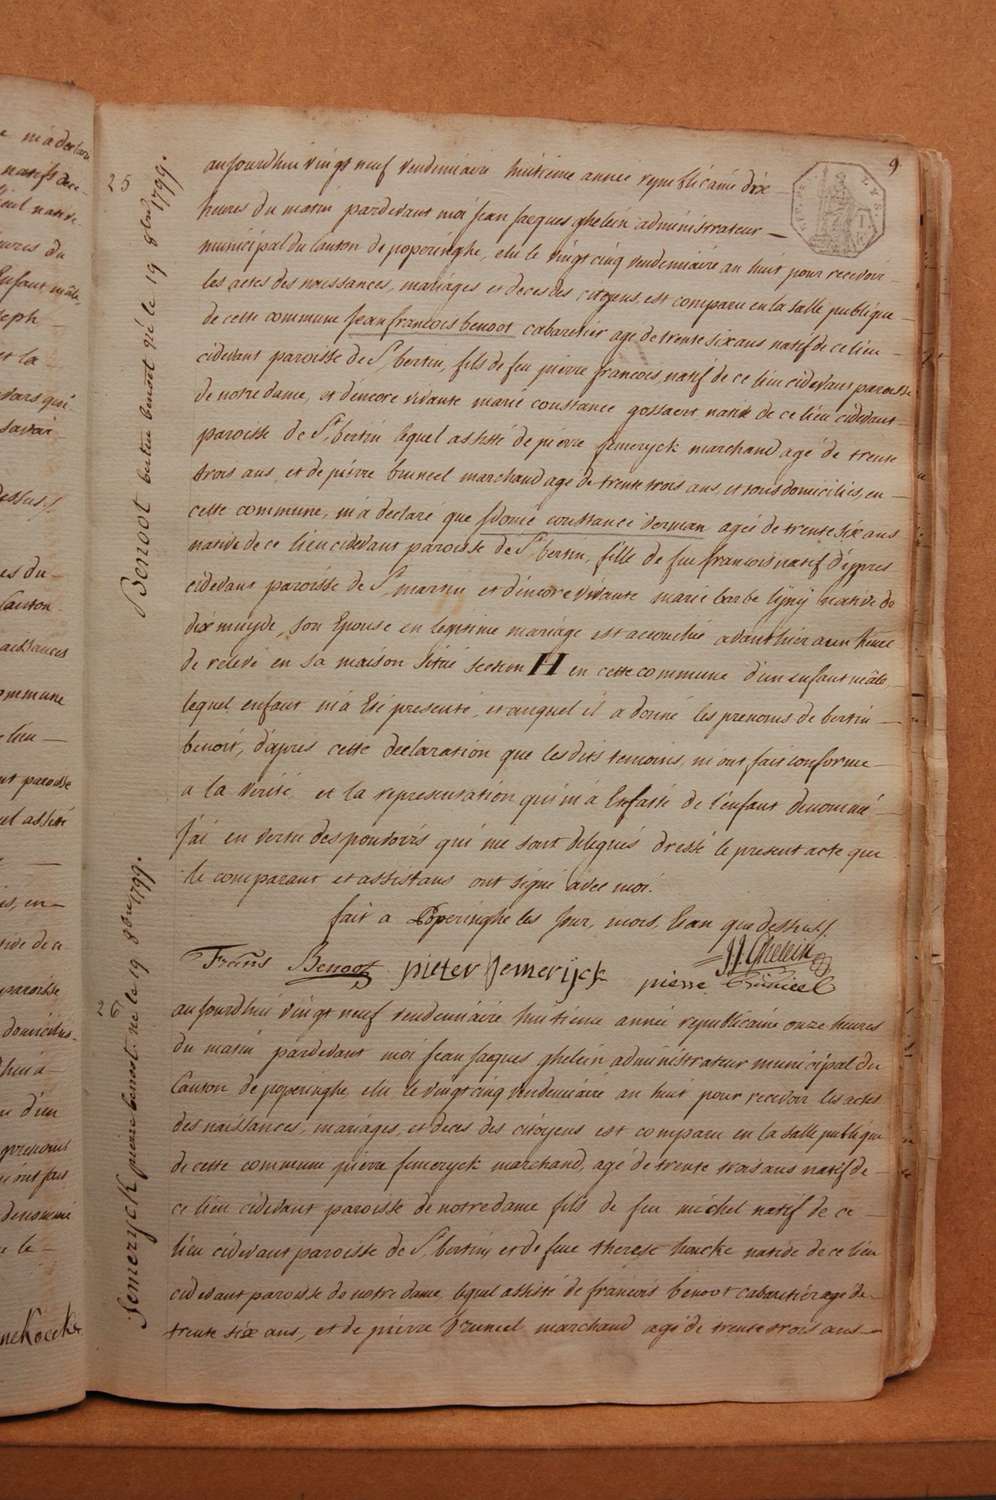 9
25
Benoot bertin benoot né le 19 8bre 1799.
aujourdhui vingt neuf vendemiaire huitieme année republicaine dix
heures du matin pardevant moi Jean Jacques ghelein administrateur
municipal du Canton de poperinghe, elu le vingt cinq vendemiaire an huit pour recevoir
les actes des naissances, mariages et deces des citoyens est comparu en la salle publique
de cette commune Jean francois benoot cabaretier agé de trente six ans natif de ce lieu
cidevant paroisse de St bertin, fils de feu pierre francois, natif de ce lieu cidevant paroisse
de notre dame, et d'encore vivante marie constance gossaert native de ce lieu cidevant
paroisse de St bertin lequel assisté de pierre femeryck marchand agé de trente
trois ans, et de pierre bruneel marchand agé de trente trois ans, et tous domiciliés en
cette commune, m'a declaré que constance agés de trente six ans
native de ce lieu cidevant paroisse de St bertin, fille de feu francois natif d'ypres
cidevant paroisse de St martin et d'encore vivante marie barbe native de
dixmuyde, son Epouse en legitime mariage est accouchée avant hier a un heure
de relevé en sa maison Sitüé section H en cette commune d'un enfant mâle,
lequel enfant m'a Eté presenté, et auquel il a donné les prenoms de bertin
benoit, d'apres cette declaration que les dits temoins m'ont fait conforme
a la verité et la representation qui m'a Eté faite de l'enfant denommé
J'ai en vertu des pouvoirs qui me sont delegués dressé le present acte que
le comparant et assistans ont signé avec moi.
fait a Poperinghe les Jour, mois, Et an que dessus.
Frans Benoot pieter femerijck pierre Bruneel JJ Ghelein
26
femeryck pierre benoit né le 19 8bre 1799.
aujourdhui vingt neuf vendemiaire huitieme année republicaine onze heures
du matin pardevant moi Jean Jacques ghelein administrateur municipal du
Canton de poperinghe, elu le vingt cinq vendemiaire an huit pour recevoir les actes
des naissances, mariages, et deces des citoyens est comparu en la salle publique
de cette commune pierre femeryck marchand, agé de trente trois ans natif de
ce lieu cidevant paroisse de notre dame fils de feu michel natif de ce
lieu cidevant paroisse de St bertin, et de feue therese houcke native de ce lieu
cidevant paroisse de notre dame lequel assisté de francois benoot cabaretier agé de
trente six ans, et de pierre bruneel marchand agé de trente trois ans